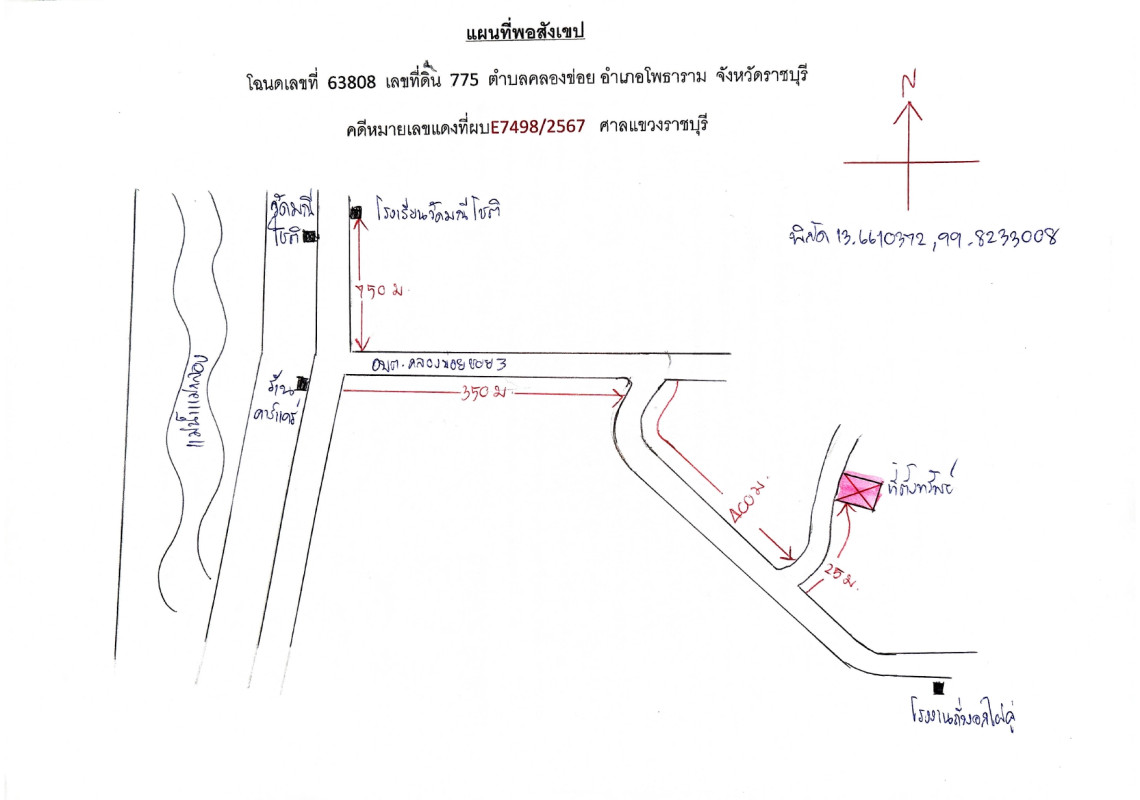 แผนที่พอสังเขป
โฉนดเลขที่ 63808 เลขที่ดิน 775 ตำบลคลองข่อย อำเภอโพธาราม จังหวัดราชบุรี
คดีหมายเลขแดงที่ผบE7498/2567 ศาลแขวงราชบุรี
N
พิกัด 13.6610372, 99.8233008
วัดมณี
โชติ
โรงเรียนวัดมณีโชติ
750 ม.
อบต.คลองข่อย ซอย 3
350 ม
แม่น้ำแม่กลอง
ร้าน
คาร์แคร์
400 ม.
ที่ตั้งทรัพย์
25 ม.
โรงงาน